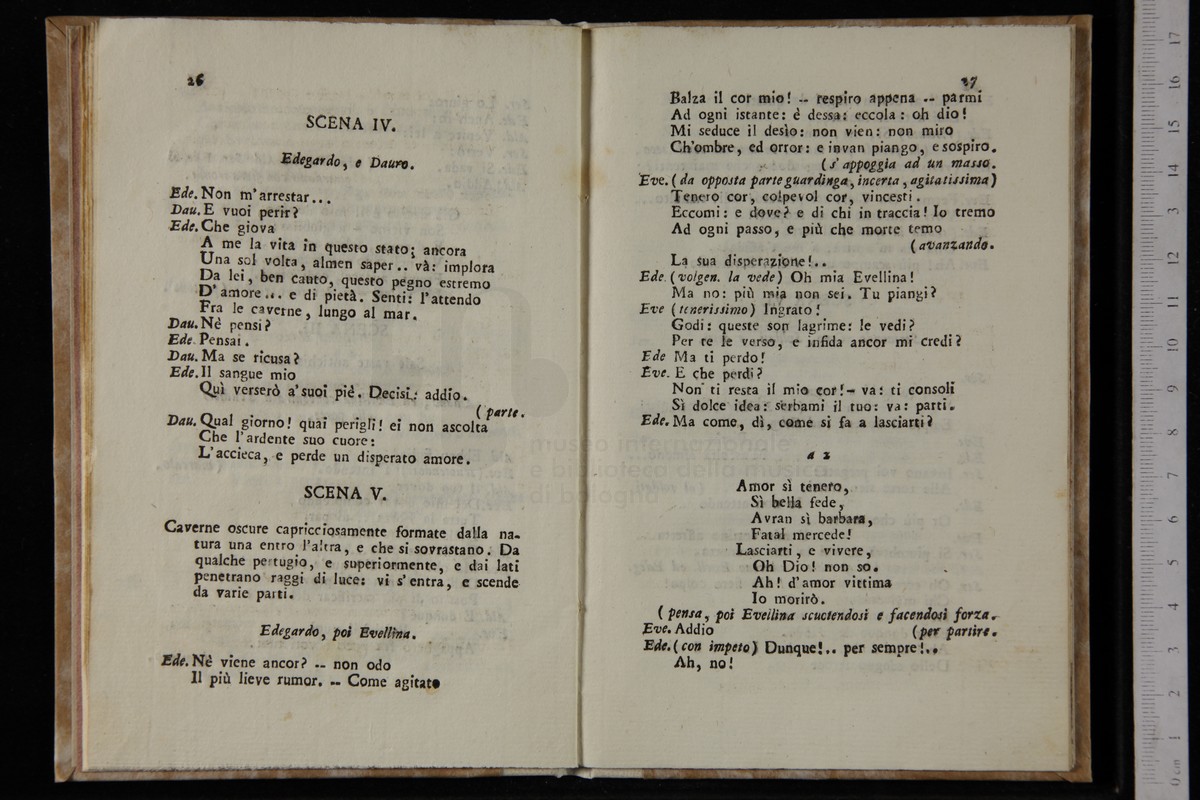 26
SCENA IV.
Edegardo, e Dauro.
Ede. Non m'arrestar...
Dau. E vuoi perir?
Ede. Che giova
A me la vita in questo stato; ancora
Una sol volta, almen saper.. và: implora
Da lei, ben cauto, questo pegno estremo
D'amore... e di pietà. Senti: l'attendo
Fra le caverne, lungo al mar.
Dau. Nè pensi?
Ede. Pensai.
Dau. Ma se ricusa?
Ede. Il sangue mio
Quì verserò a'suoi piè. Decisi: addio.
(parte.
Dau. Qual giorno! quai perigli! ei non ascolta
Che l'ardente suo cuore:
L'accieca, e perde un disperato amore.
SCENA V.
Caverne oscure capricciosamente formate dalla na-
tura una entro l'altra, e che si sovrastano. Da
qualche pertugio, e superiormente, e dai lati
penetrano raggi di luce: vi s'entra, e scende
da varie parti.
Edegardo, poi Evellina.
Ede. Nè viene ancor? -- non odo
Il più lieve rumor. -- Come agitato
27
Balza il cor mio! -- respiro appena -- parmi
Ad ogni istante: è dessa: eccola: oh dio!
Mi seduce il desìo: non vien: non miro
Ch'ombre, ed orror: e invan piango, e sospiro.
(s'appoggia ad un masso.
Eve. (da opposta parte guardinga, incerta, agitatissima)
Tenero cor, colpevol cor, vincesti.
Eccomi: e dove? e di chi in traccia! Io tremo
Ad ogni passo, e più che morte temo
(avanzando.
La sua disperazione!..
Ede. (volgen. la vede) Oh mia Evellina!
Ma no: più mia non sei. Tu piangi?
Eve (tenerissimo) Ingrato!
Godi: queste son lagrime: le vedi?
Per te le verso, e infida ancor mi credi?
Ede Ma ti perdo!
Eve. E che perdi?
Non ti resta il mio cor!- va: ti consoli
Sì dolce idea: serbami il tuo: va: parti.
Ede. Ma come, dì, come si fa a lasciarti?
a 2
Amor sì tenero,
Sì bella fede,
Avran sì barbara,
Fatal mercede!
Lasciarti, e vivere,
Oh Dio! non so.
Ah! d'amor vittima
Io morirò.
(pensa, poi Evellina scuotendosi e facendosi forza.
Eve. Addio (per partire.
Ede. (con impeto) Dunque!.. per sempre!..
Ah, no!
museo internazionale
e biblioteca della musica
di bologna
17
16
15
14
13
12
11
10
9
8
7
6
5
4
3
2
1
0 cm